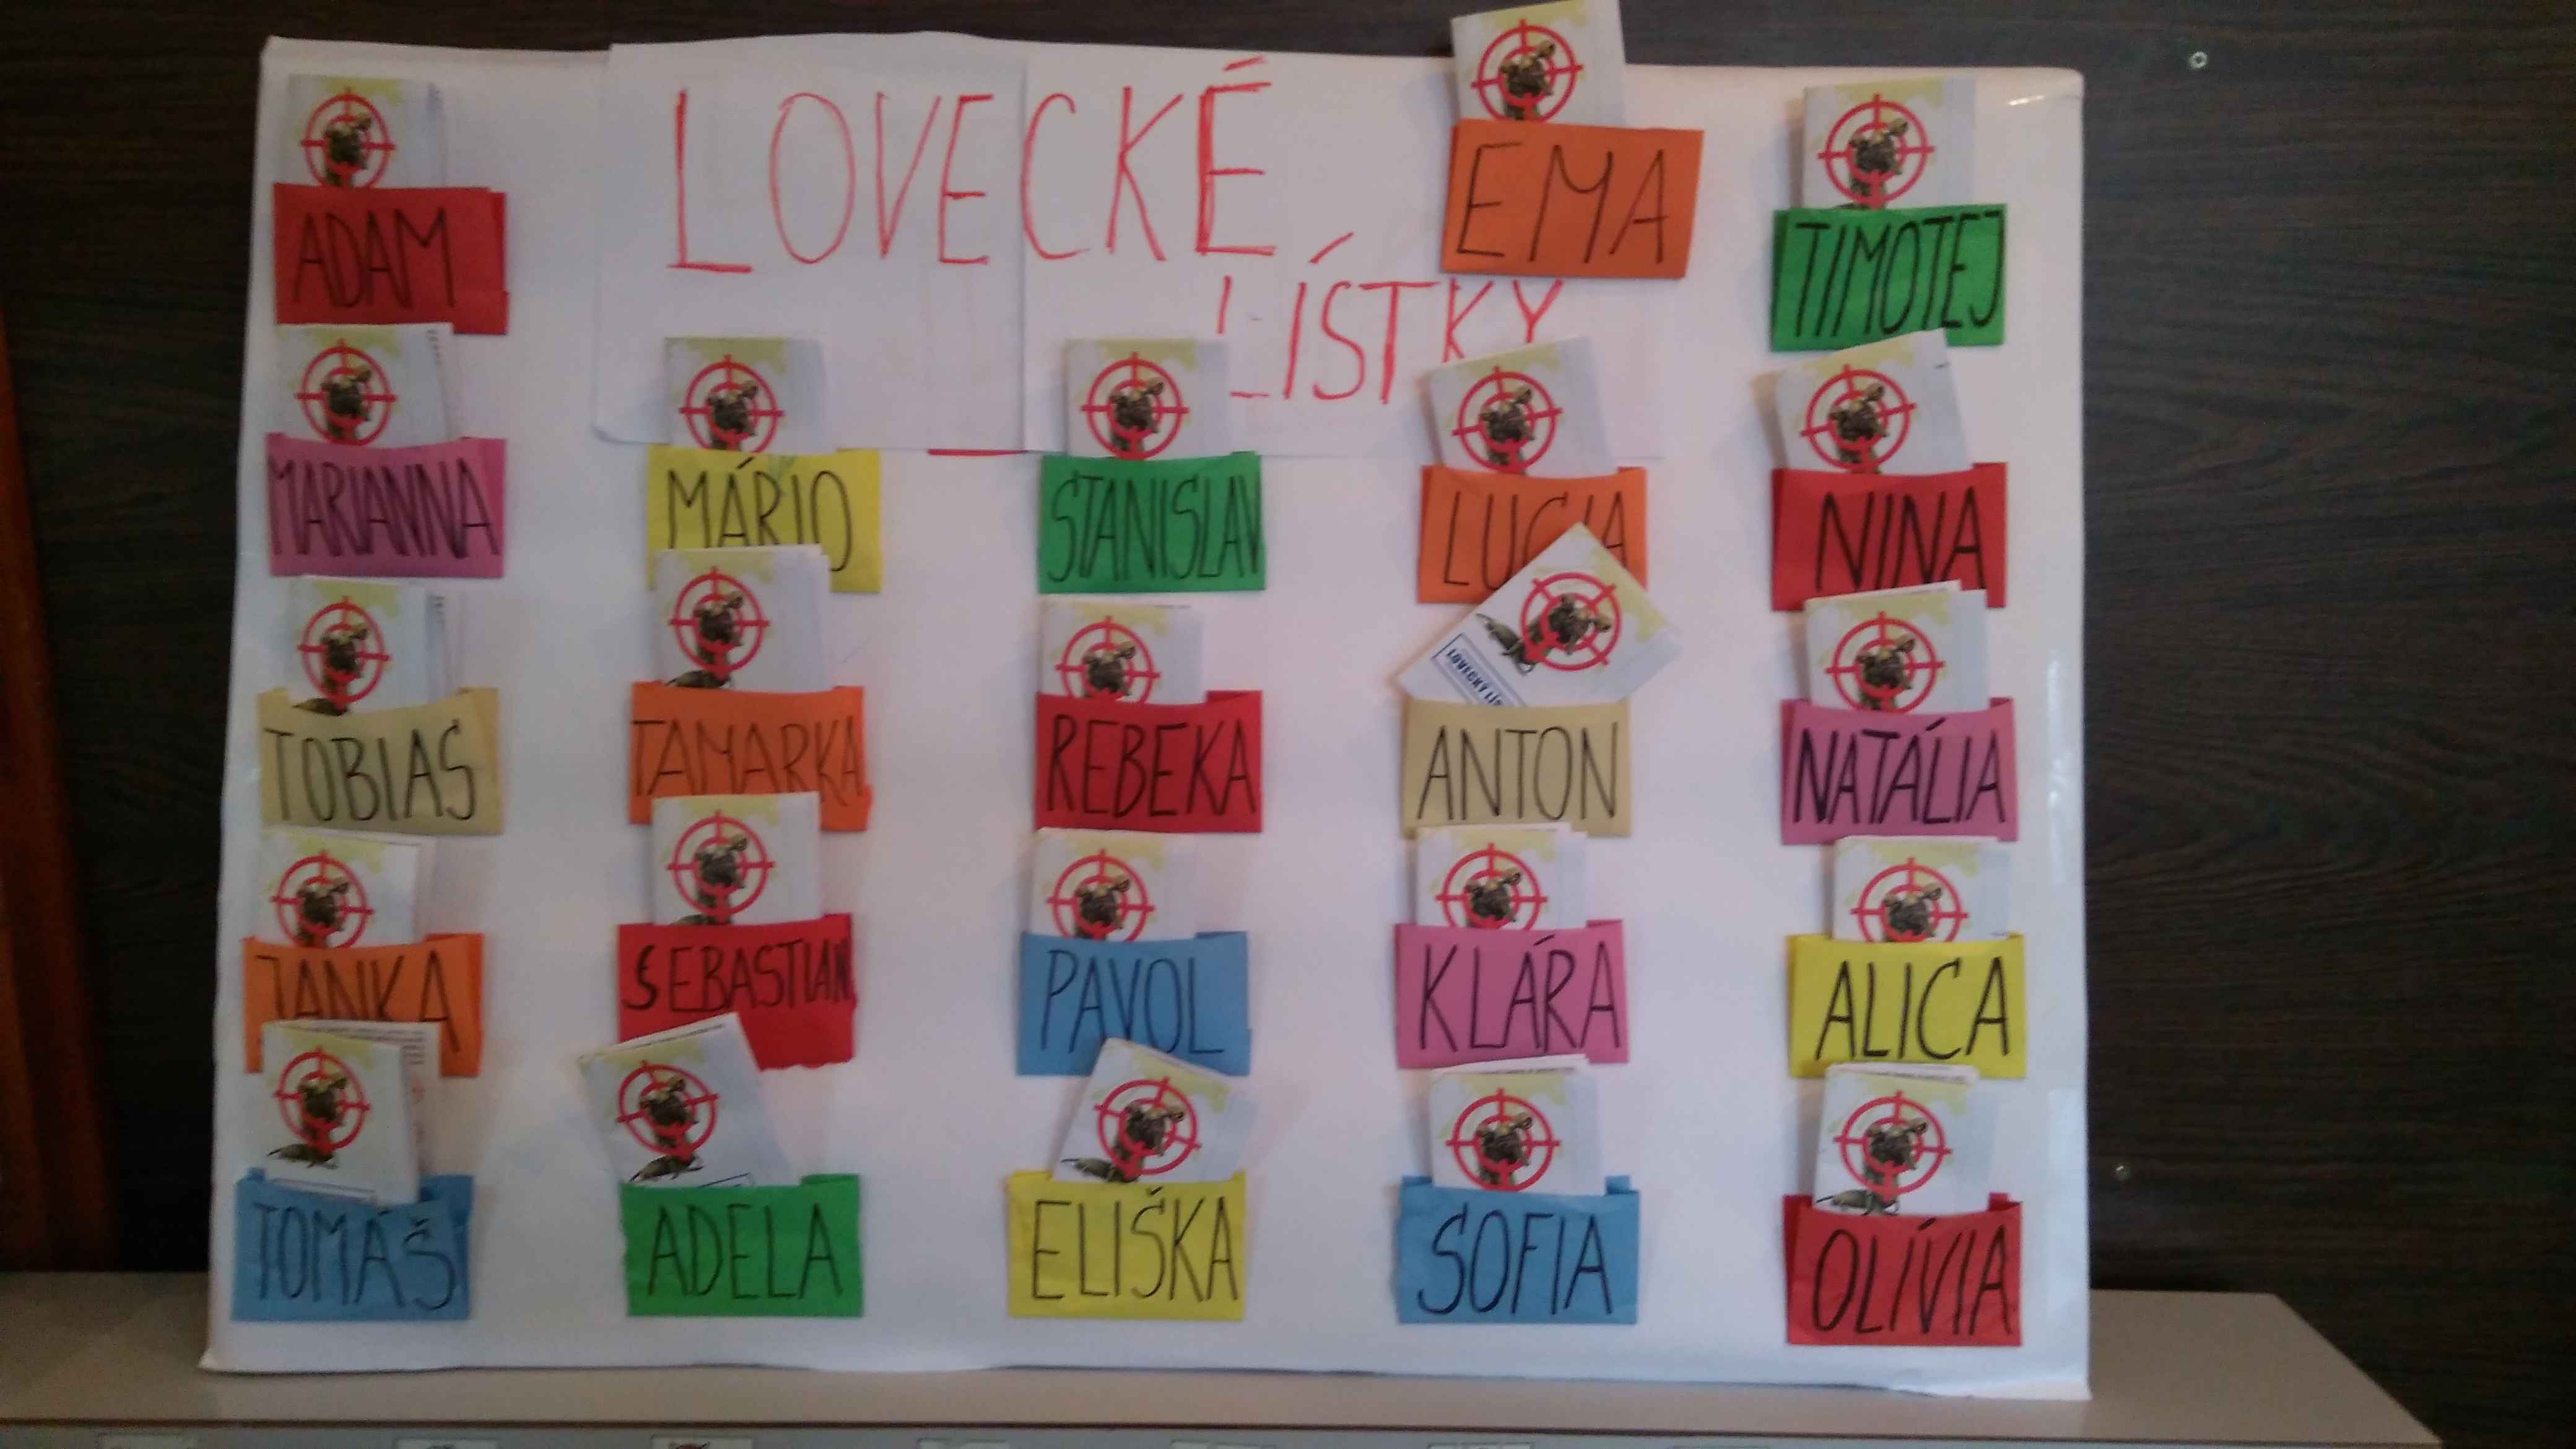 LOVECKÉ
LÍSTKY
EMA
TIMOTEJ
ADAM
MARIANNA
MÁRIO
STANISLAV
LUCIA
NINA
TOBIAS
TAMARKA
REBEKA
LOVECKÝ
ANTON
NATÁLIA
JANKA
SEBASTIAN
PAVOL
KLÁRA
ALICA
TOMÁŠ
ADELA
ELIŠKA
SOFIA
OLÍVIA